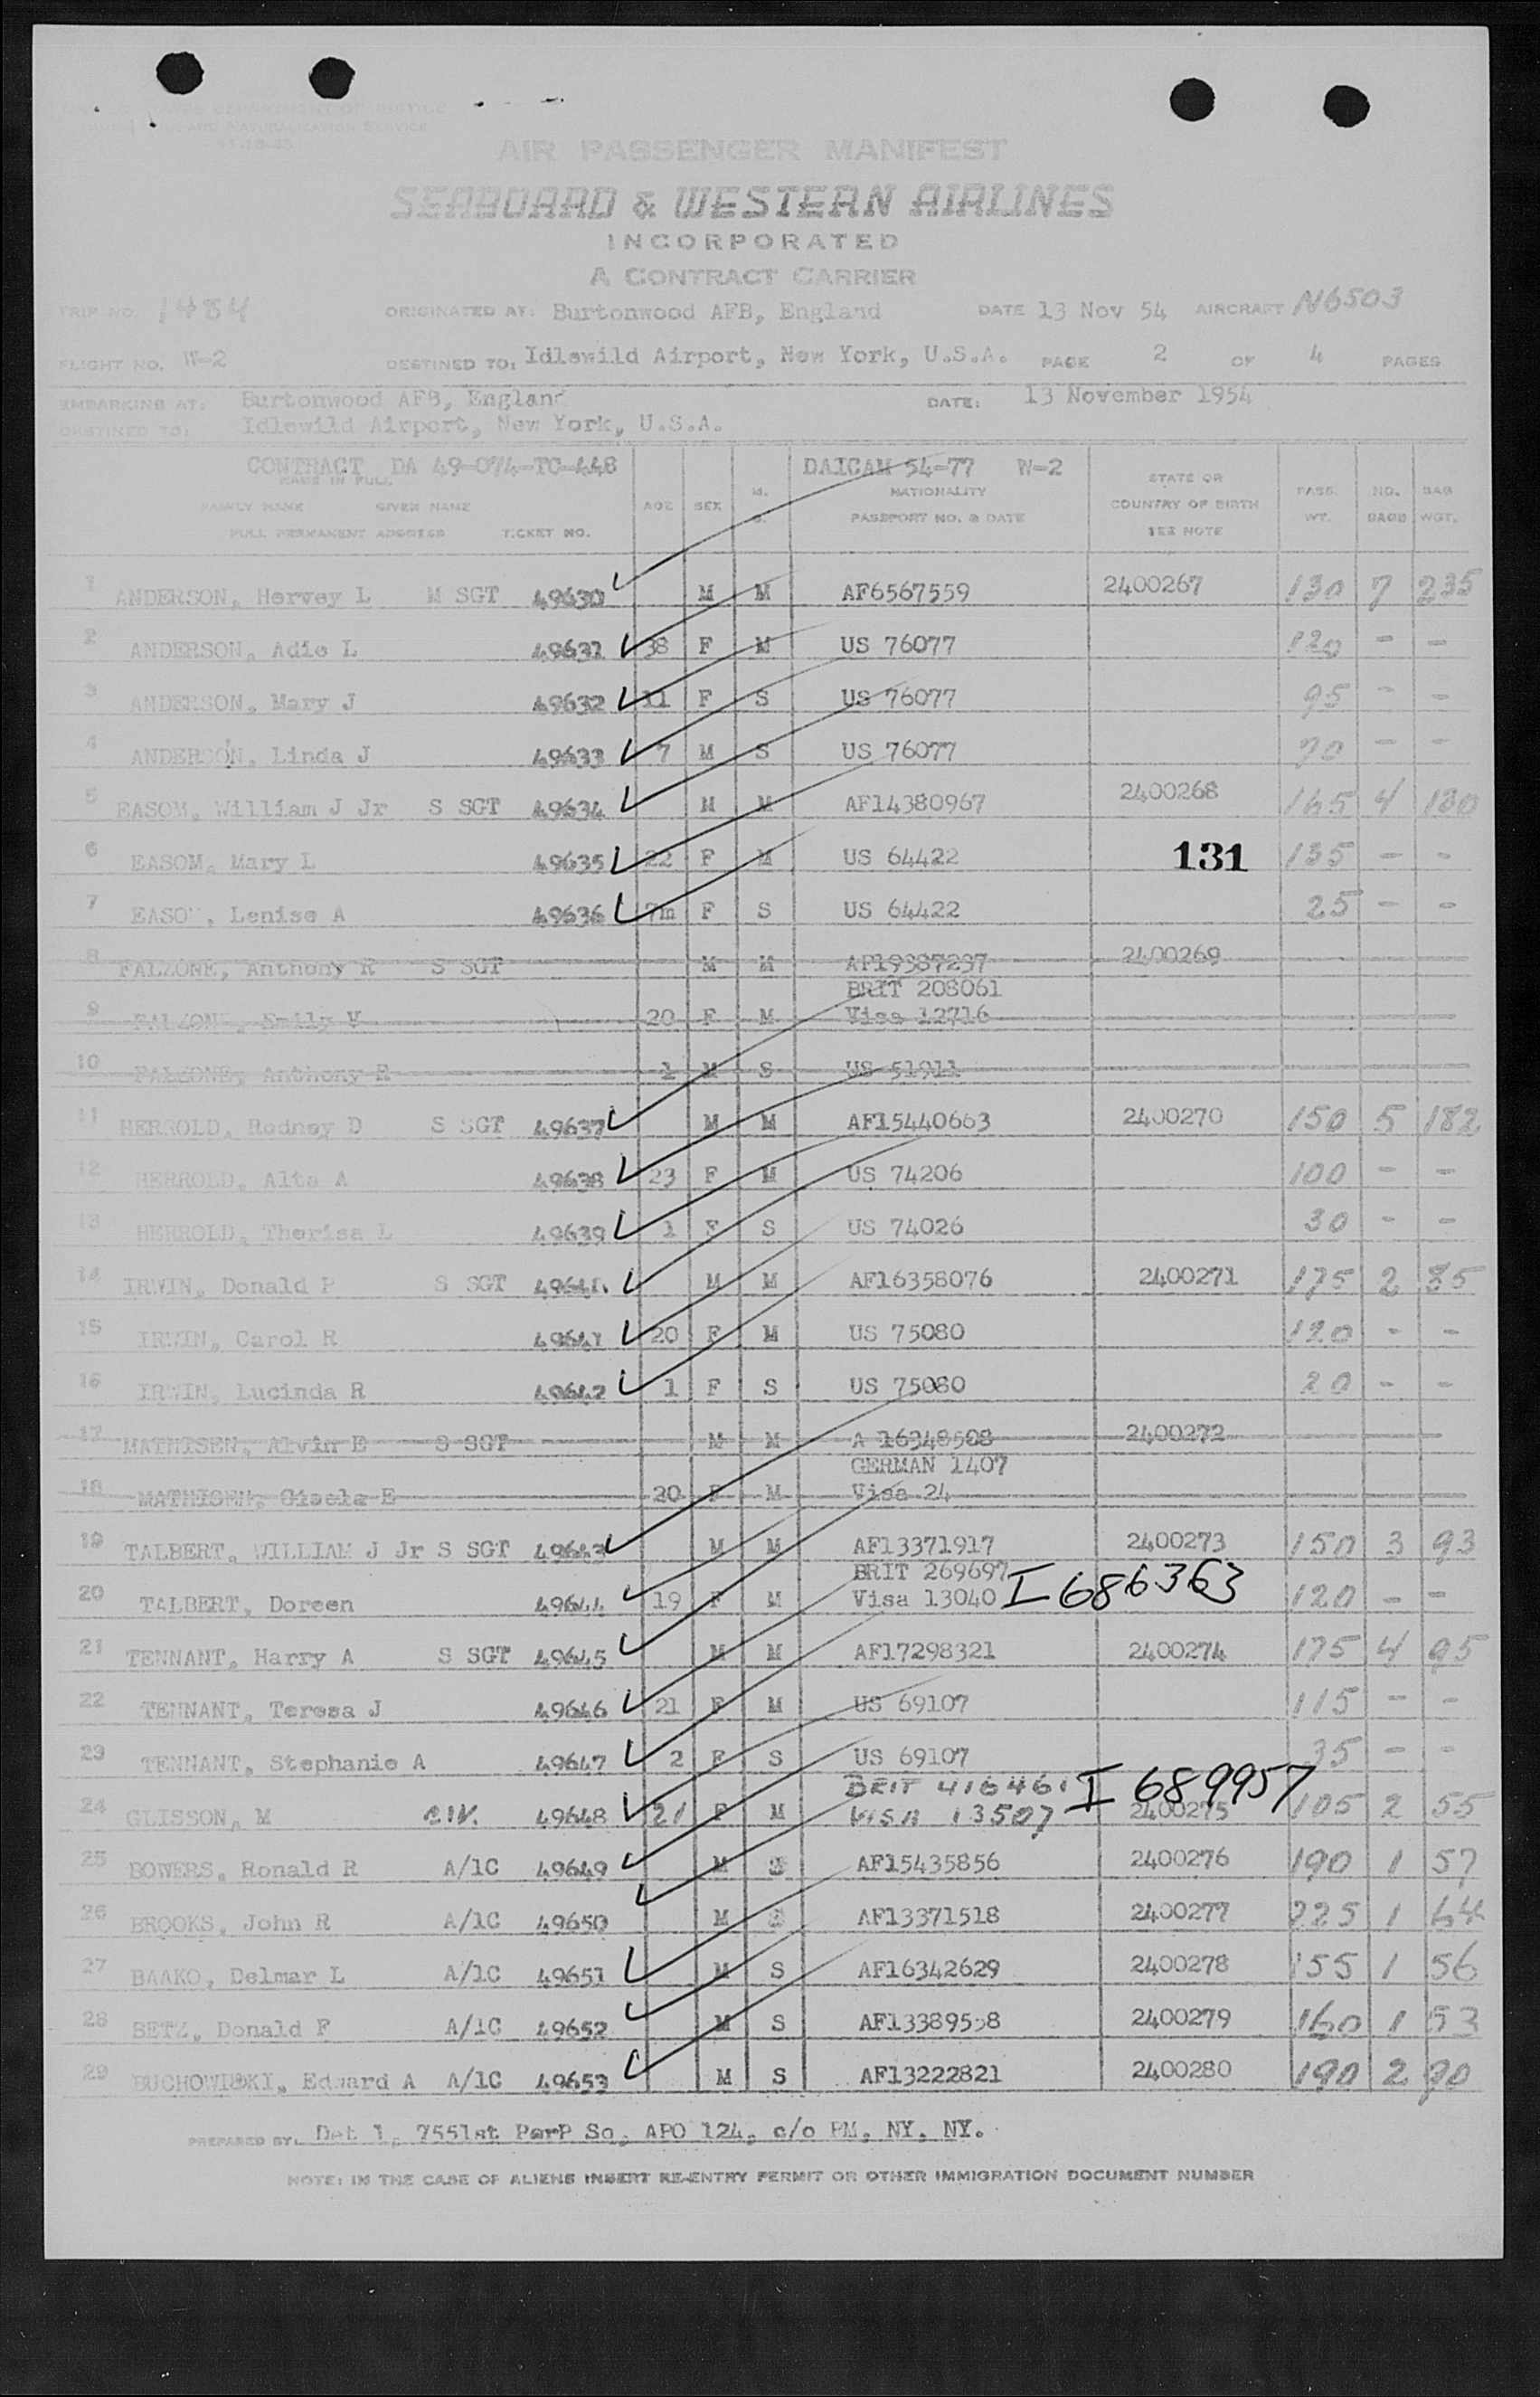 UNITED STATES DEPARTMENT OF JUSTICE
IMMIGRATION AND NATURALIZATION SERVICE
AIR PASSENGER MANIFEST
SEABOARD & WESTERN AIRLINES
INCORPORATED
A CONTRACT CARRIER
TRIP NO. 1484 ORIGINATED AT: Burtonwood AFB, England DATE 13 Nov 54 AIRCRAFT N6503
FLIGHT NO. W-2 DESTINED TO: Idlewild Airport, New York, U.S.A. PAGE 2 OF 4 PAGES
EMBARKING AT: Burtonwood AFB, England DATE: 13 November 1954
DESTINED TO: Idlewild Airport, New York, U.S.A.
CONTRACT DA 49-074-TC-448 DAICAM 54-77 W-2
NAME IN FULL
FAMILY NAME GIVEN NAME
FULL PERMANENT ADDRESS TICKET NO.
AGE SEX M. S. NATIONALITY PASSPORT NO. & DATE STATE OR COUNTRY OF BIRTH SEE NOTE PASS. WT. NO. BAGS BAG WGT.
1 ANDERSON, Hervey L M SGT 49630 M M AF6567559 2400267 130 7 235
2 ANDERSON, Adie L 49631 38 F M US 76077 120 - -
3 ANDERSON, Mary J 49632 11 F S US 76077 95 - -
4 ANDERSON, Linda J 49633 7 M S US 76077 70 - -
5 EASOM, William J Jr S SGT 49634 M M AF14380967 2400268 165 4 130
6 EASOM, Mary L 49635 22 F M US 64422 131 135 - -
7 EASOM, Lenise A 49636 7m F S US 64422 25 - -
8 FALZONE, Anthony R S SGT M M AF19387237 2400269
BRIT 208061
9 FALZONE, Emily V 20 F M Visa 12716
10 FALZONE, Anthony R 1 M S US 51911
11 HERROLD, Rodney D S SGT 49637 M M AF15440663 2400270 150 5 182
12 HERROLD, Alta A 49638 23 F M US 74206 100 - -
13 HERROLD, Therisa L 49639 1 F S US 74026 30 - -
14 IRWIN, Donald P S SGT 49640 M M AF16358076 2400271 175 2 85
15 IRWIN, Carol R 49641 20 F M US 75080 120 - -
16 IRWIN, Lucinda R 49642 1 F S US 75080 20 - -
17 MATHISEN, Alvin E S SGT M M A 16348508 2400272
GERMAN 1407
18 MATHISEN, Gisela E 20 F M Visa 24
19 TALBERT, WILLIAM J Jr S SGT 49643 M M AF13371917 2400273 150 3 93
BRIT 269697
20 TALBERT, Doreen 49644 19 F M Visa 13040 I 686363 120 - -
21 TENNANT, Harry A S SGT 49645 M M AF17298321 2400274 175 4 95
22 TENNANT, Teresa J 49646 21 F M US 69107 115 - -
23 TENNANT, Stephanie A 49647 2 F S US 69107 35 - -
BRIT 416461 I 689957
24 GLISSON, M CIV. 49648 21 F M VISA 13507 2400275 105 2 55
25 BOWERS, Ronald R A/1C 49649 M 2400276 AF15435856 190 1 57
26 BROOKS, John R A/1C 49650 M AF13371518 2400277 225 1 64
27 BAAKO, Delmar L A/1C 49651 M S AF16342629 2400278 155 1 56
28 BETZ, Donald F A/1C 49652 M S AF13389558 2400279 160 1 53
29 BUCHOWISKI, Edward A A/1C 49653 M S AF13222821 2400280 190 2 90
PREPARED BY: Det 1, 7551st PerP Sq, APO 124, c/o PM, NY, NY.
NOTE: IN THE CASE OF ALIENS INSERT RE-ENTRY PERMIT OR OTHER IMMIGRATION DOCUMENT NUMBER